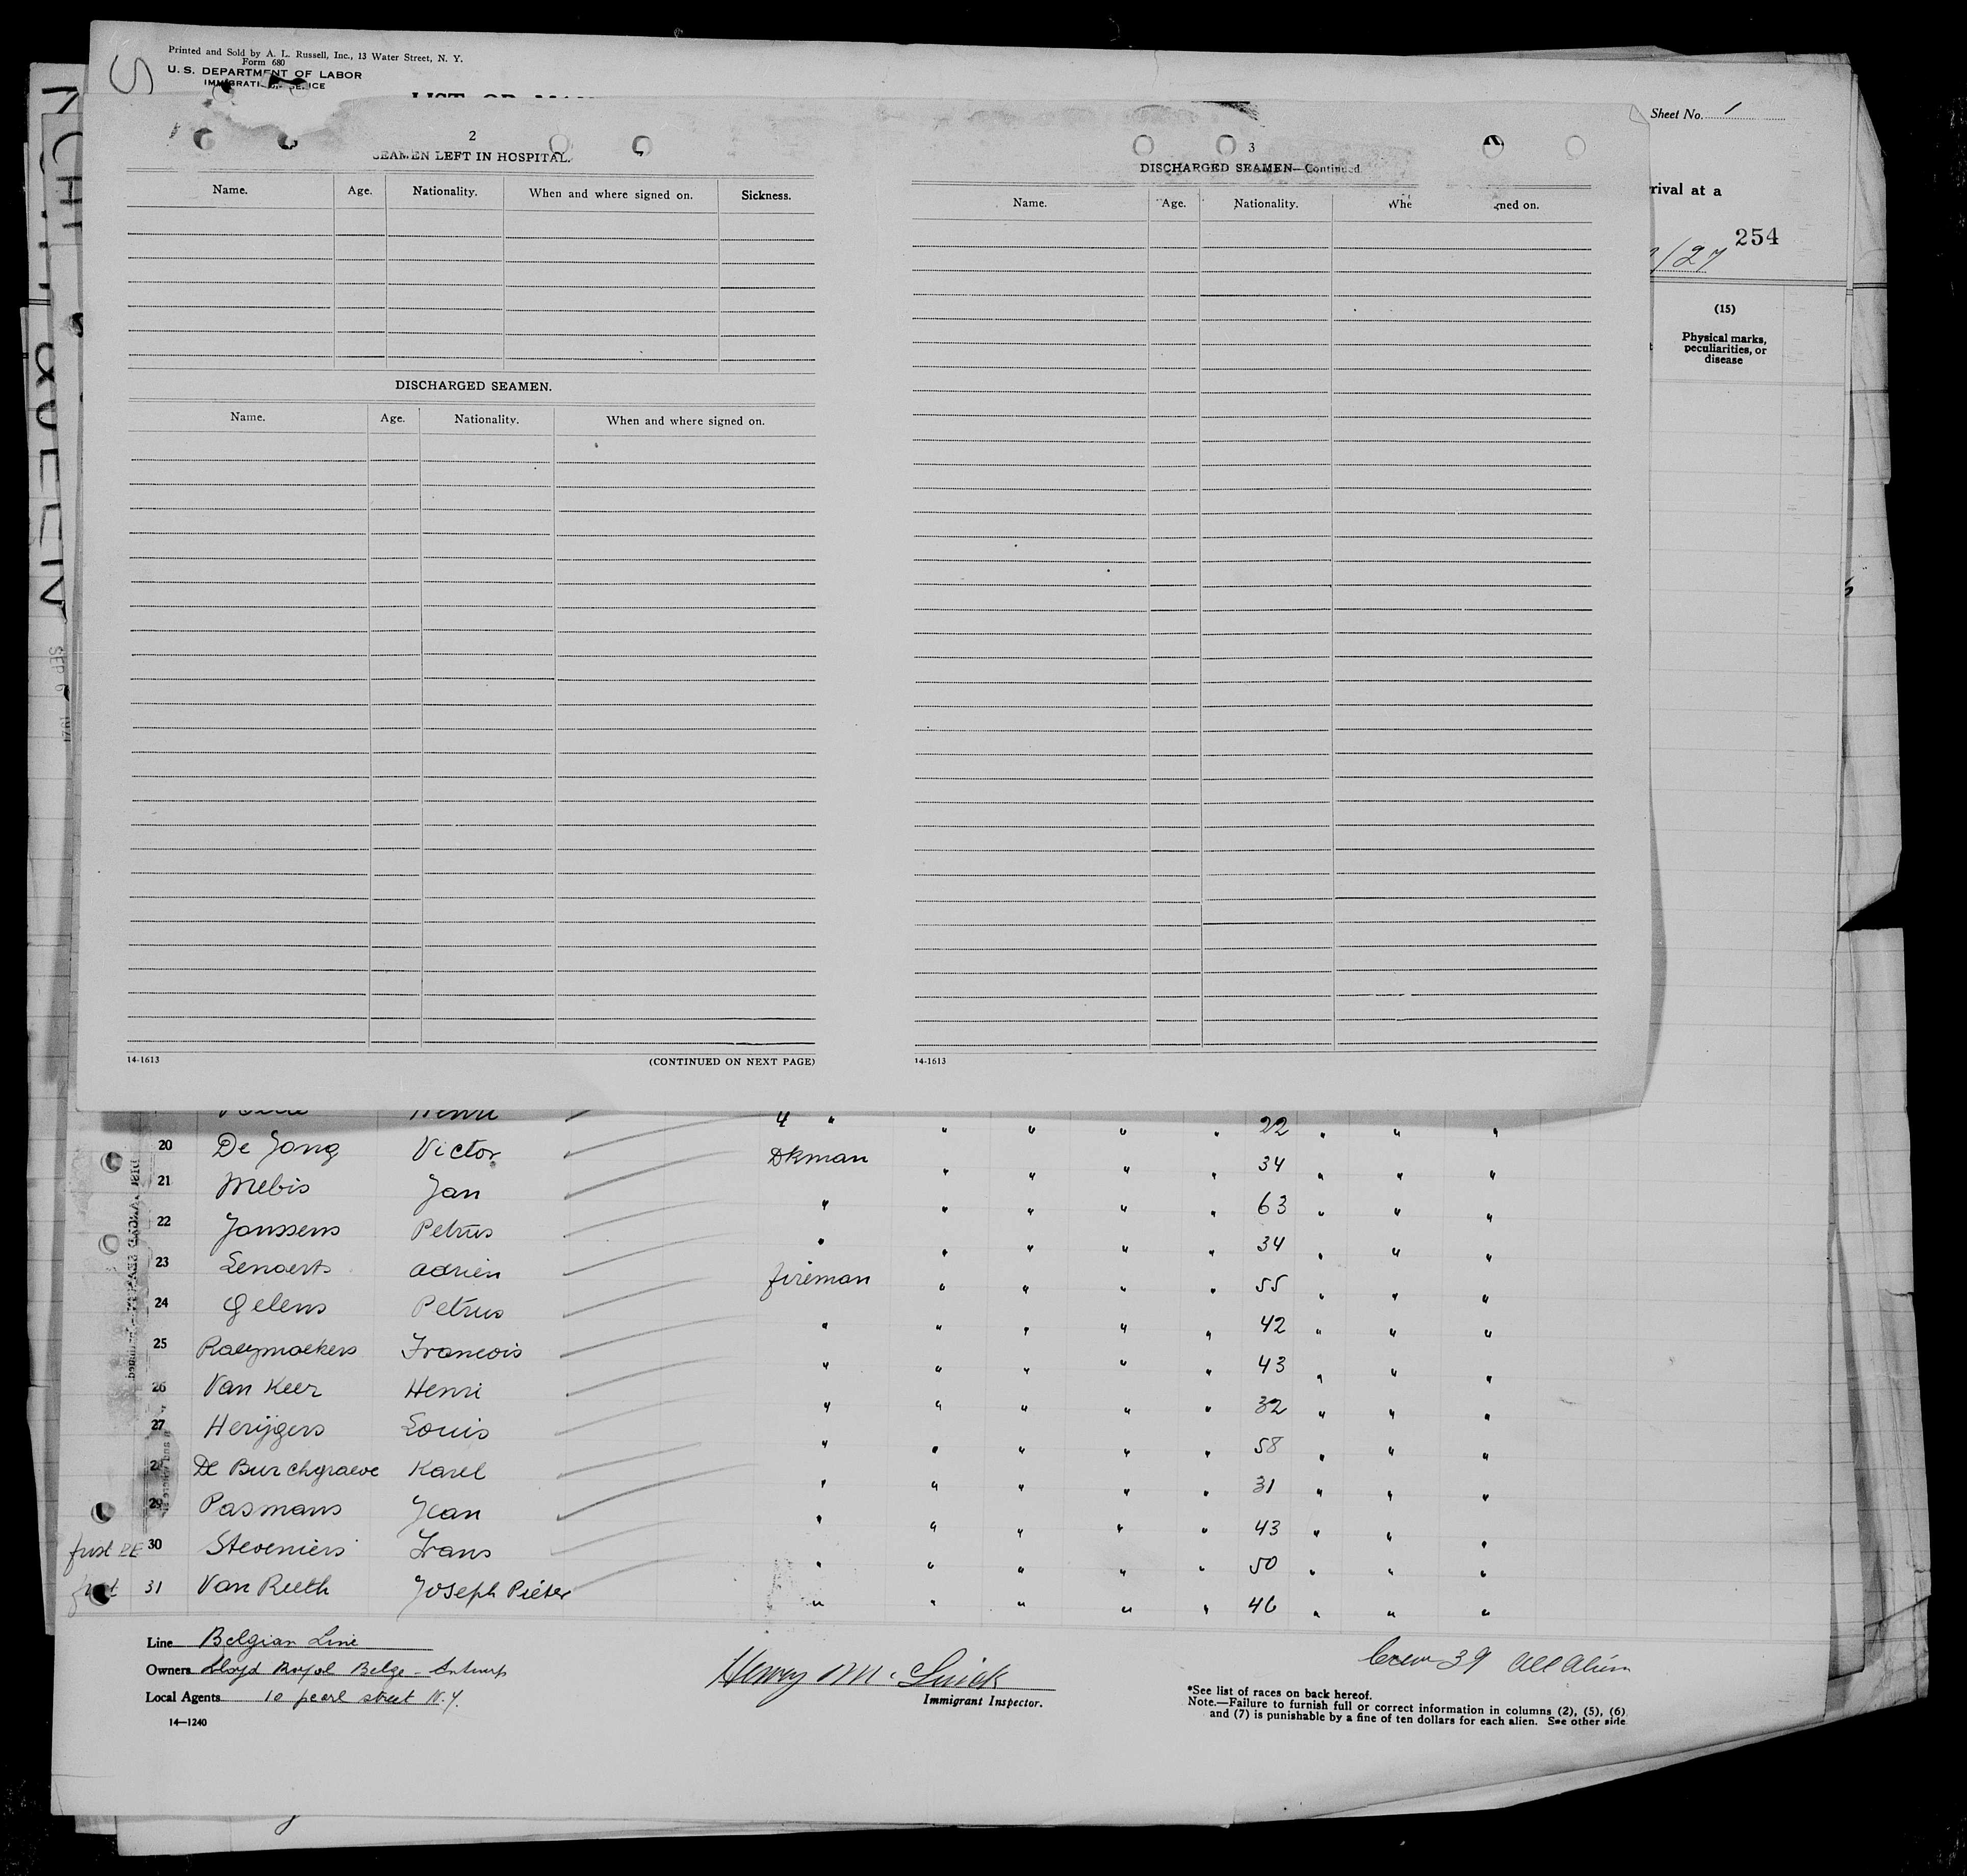 Printed and Sold by A. L. Russell, Inc., 13 Water Street, N. Y.
Form 680
U. S. DEPARTMENT OF LABOR
Sheet No. 1
rival at a
254
/27
(15)
Physical marks, peculiarities, or disease
2
SEAMEN LEFT IN HOSPITAL.
Name. Age. Nationality. When and where signed on. Sickness.
DISCHARGED SEAMEN.
Name. Age. Nationality. When and where signed on.
14-1613 (CONTINUED ON NEXT PAGE)
3
DISCHARGED SEAMEN—Continued
Name. Age. Nationality. Whe ned on.
14-1613
Henri " " " " " " 22 " " "
20 De Jong Victor Dkman " " " " 34 " " "
21 Mebis Jan " " " " " 63 " " "
22 Janssens Petrus " " " " " 34 " " "
23 Lenaerts Adrien fireman " " " " 55 " " "
24 Gelens Petrus " " " " " 42 " " "
25 Raeymaekers Francois " " " " " 43 " " "
26 Van Keer Henri " " " " " 32 " " "
27 Herijgers Louis " " " " " 58 " " "
28 De Burchgraeve Karel " " " " " 31 " " "
29 Pasmans Jean " " " " " 43 " " "
30 Steveniers Frans " " " " " 50 " " "
31 Van Reeth Joseph Pieter " " " " " 46 " " "
Line Belgian Line
Owners Lloyd Royal Belge - Antwerp
Local Agents 10 pearl street N.Y.
14—1240
Immigrant Inspector.
Crew 39 All Alien
*See list of races on back hereof.
Note.—Failure to furnish full or correct information in columns (2), (5), (6)
and (7) is punishable by a fine of ten dollars for each alien. See other side